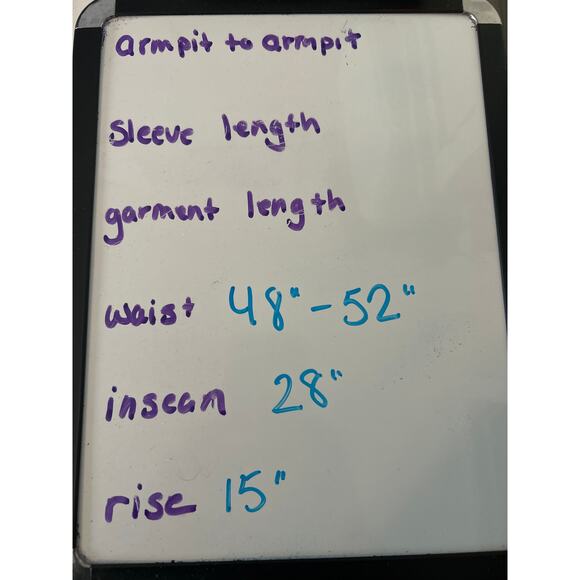 armpit to armpit
sleeve length
garment length
waist 48"-52"
inseam 28"
rise 15"